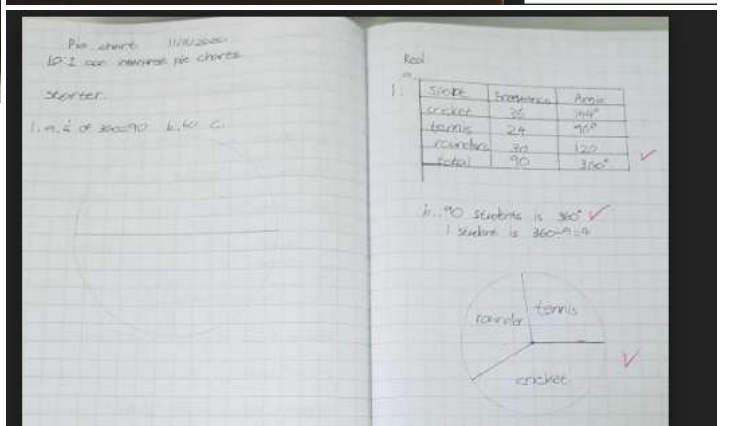 Pie chart 11/11/2020
LO: I can interpret pie charts
Starter
1. a. ¼ of 360=90 b. 60 c.
Red
1.
Sport Frequency Angle
cricket 36 144°
tennis 24 96°
rounders 30 120
total 90 360°
90 students is 360°
1 student is 360÷
rounder
tennis
cricket